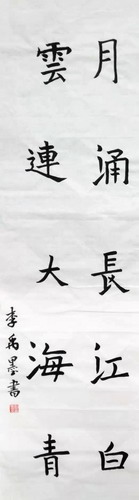 月涌長江白
雲連大海青
李禹墨書